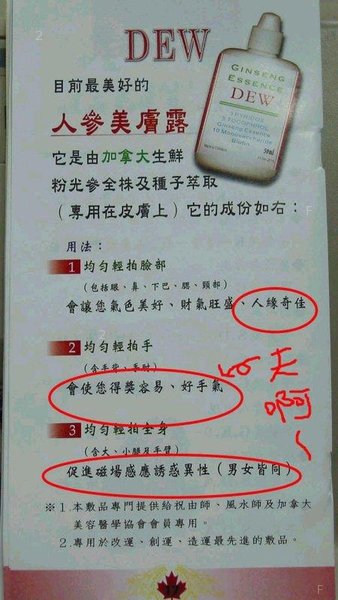 DEW
目前最美好的
人參美膚露
它是由加拿大生鮮
粉光參全株及種子萃取
（專用在皮膚上）它的成份如右：
GINSENG
ESSENCE
DEW
用法：
1 均勻輕拍臉部
（包括眼、鼻、下巴、腮、頸部）
會讓您氣色美好、財氣旺盛、人緣奇佳
2 均勻輕拍手
會使您得獎容易、好手氣
3 均勻輕拍全身
（含大、小腿及手臂）
促進磁場感應誘惑異性（男女皆同）
※1.本敷品專門提供給祝由師、風水師及加拿大
美容醫學協會會員專用。
2.專用於改運、創運、造運最先進的敷品。
17